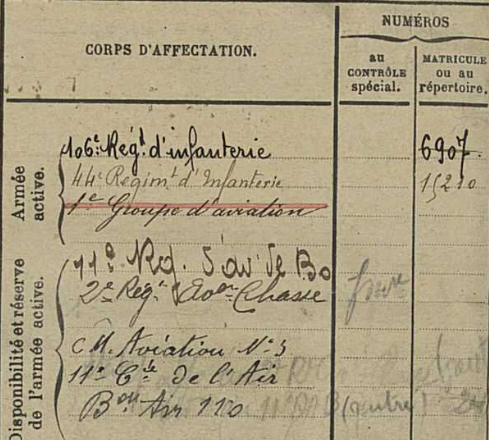 NUMÉROS
CORPS D'AFFECTATION.
au CONTRÔLE spécial.
MATRICULE ou au répertoire.
Armée active.
106e Régt d'infanterie 6907
44e Regimt d'Infanterie 15210
1e Groupe d'aviation
Disponibilité et réserve de l'armée active.
11e Rég. d'av de Bo
2e Régt Avon Chasse
CM. Aviation No 3
11e Cie de l'Air
Bon Air 110